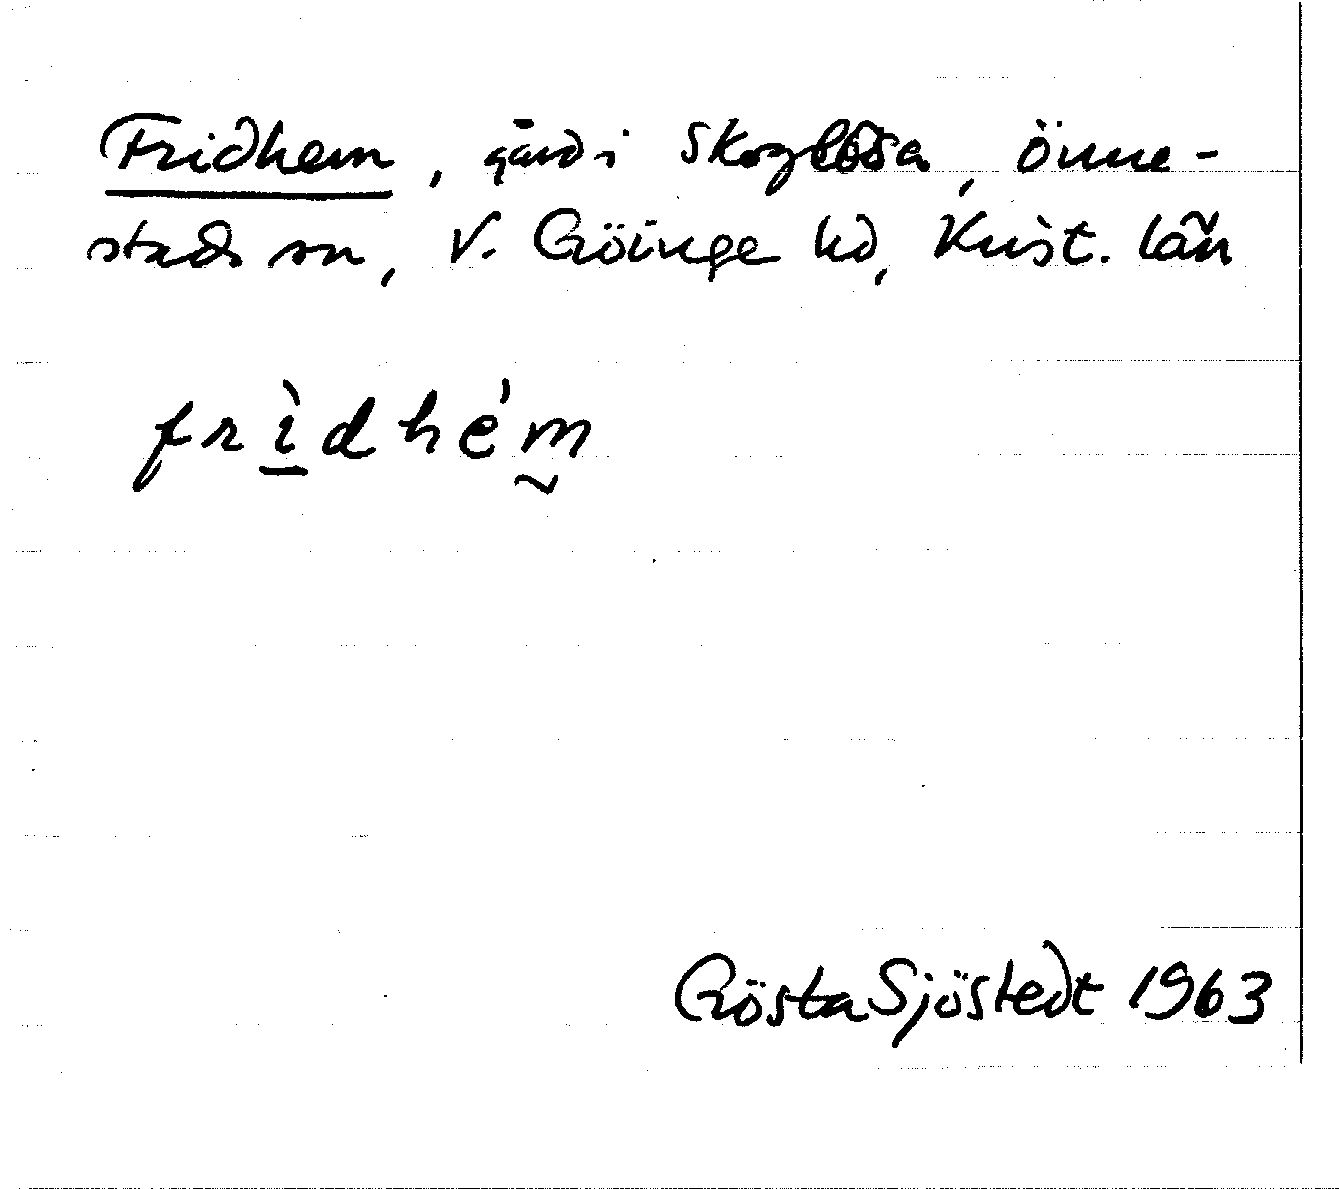 Fridhem, gård i Skoglösa, Önne-
stads sn, V. Göinge hd, Krist. län
frìdhém
Gösta Sjöstedt 1963